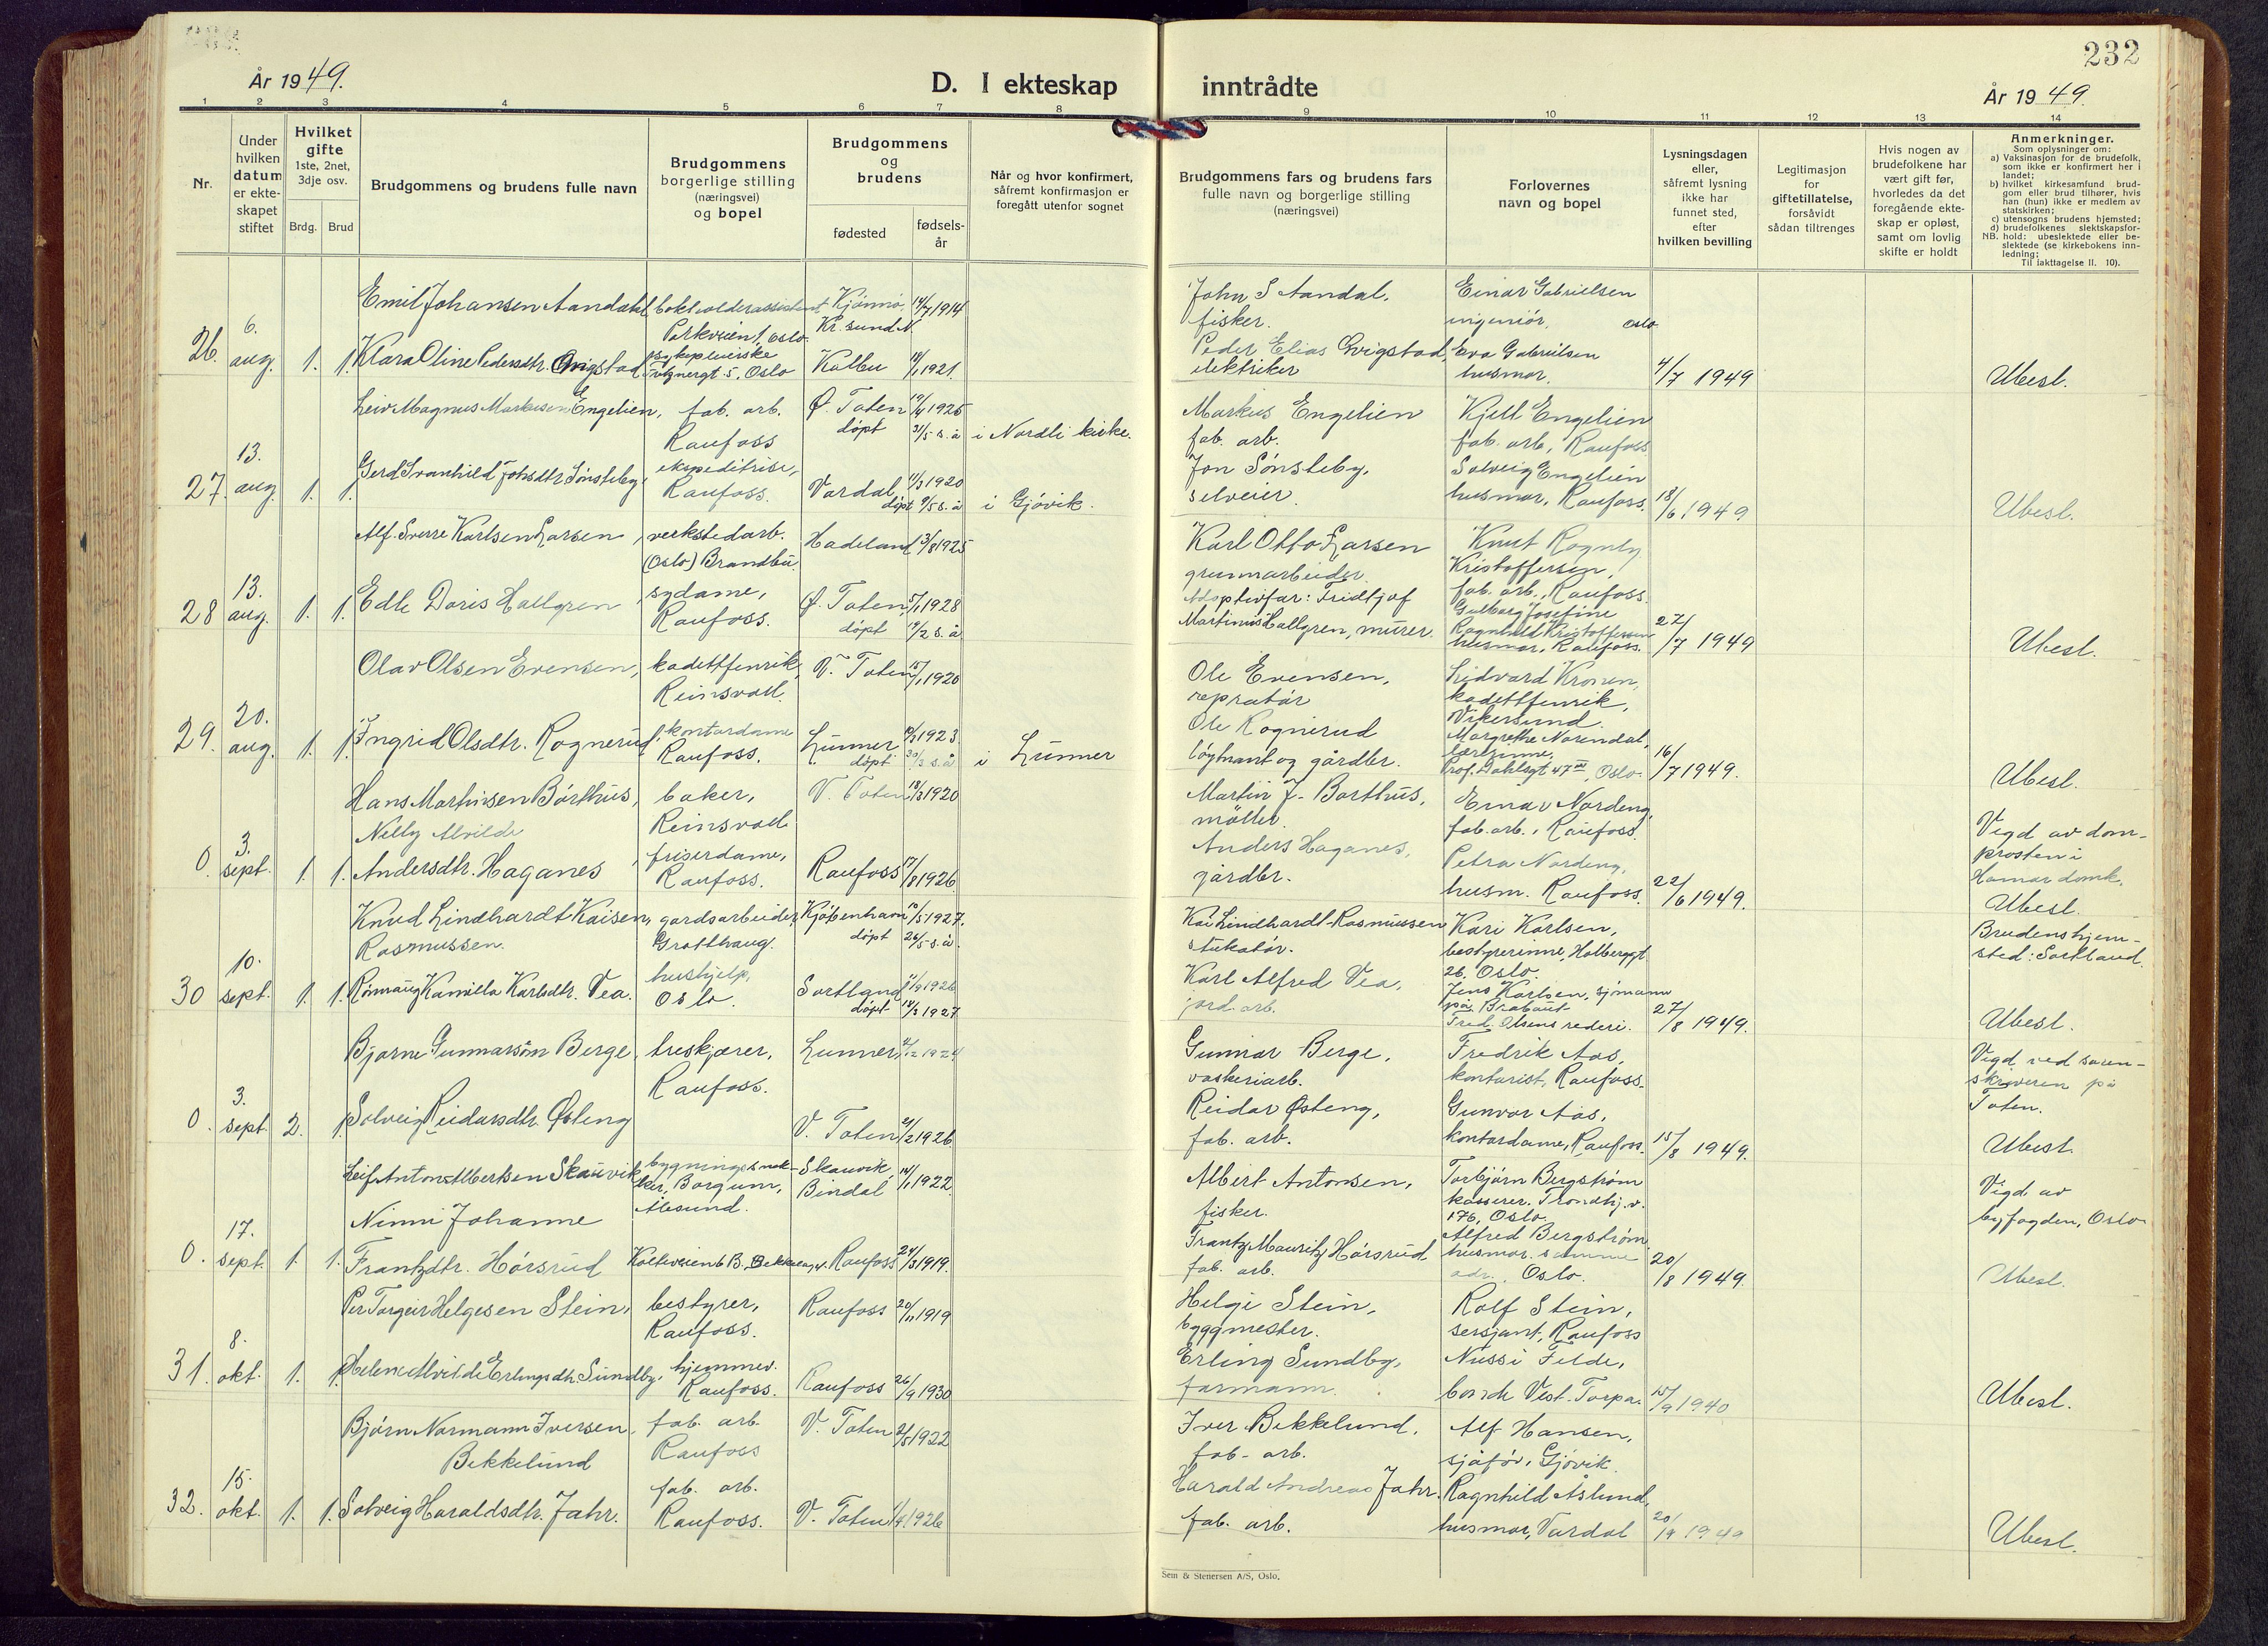 232
År 1949.
D. I ekteskap inntrådte
År 1949.
1 2 3 4 5 6 7 8 9 10 11 12 13 14
Nr.
Under hvilken datum er ekte-skapet stiftet
Hvilket gifte 1ste, 2net, 3dje osv.
Brdg. Brud
Brudgommens og brudens fulle navn
Brudgommens borgerlige stilling (næringsvei) og bopel
Brudgommens og brudens
fødested
fødsels-år
Når og hvor konfirmert, såfremt konfirmasjon er foregått utenfor sognet
Brudgommens fars og brudens fars fulle navn og borgerlige stilling (næringsvei)
Forlovernes navn og bopel
Lysningsdagen eller, såfremt lysning ikke har funnet sted, efter hvilken bevilling
Legitimasjon for giftetillatelse, forsåvidt sådan tiltrenges
Hvis nogen av brudefolkene har vært gift før, hvorledes da det foregående ekte-skap er opløst, samt om lovlig skifte er holdt
Anmerkninger.
Som oplysninger om:
a) Vaksinasjon for de brudefolk, som ikke er konfirmert her i landet;
b) hvilket kirkesamfund brud-gom eller brud tilhører, hvis han (hun) ikke er medlem av statskirken;
c) utensogns brudens hjemsted;
d) brudefolkenes slektskapsfor-hold: ubeslektede eller be-slektede (se kirkebokens inn-ledning;
NB. Til iakttagelse II. 10).
26. 6. aug. 1. 1.
Emil Johansen Aandahl, bokholderassistent Parkveien 1, Oslo. Kr. sund N. 14/7 1914
John S Aandal, fisker.
Einar Gabrielsen ingeniör, Oslo
Klara Oline Pedersdtr. Qvigstad, sykepleierske 5, Oslo Kolbu 18/1 1921.
Peder Elias Qvigstad, elektriker
Eva Gabrielsen husmor.
4/7 1949
Ubesl.
27. 13. aug. 1. 1.
Leiv Magnus Markusen Engelien, fab. arb. Raufoss Ø. Toten 19/4 1925 döpt 31/5 s. å i Nordli kirke.
Markus Engelien fab. arb.
Kjell Engelien fab. arb, Raufoss
Gerd Svanhild Johsdtr Sönsteby ekspeditrise, Raufoss. Vardal 11/3 1920 döpt 9/5 s. å i Gjövik.
Jon Sönsteby, selveier.
Solveig Engelien husmor, Raufoss.
18/6 1949
Ubesl.
28 13. aug. 1. 1.
Alf Sverre Karlsen Larsen, verkstedarb. (Oslo) Brandbu. Hadeland 3/8 1925
Karl Otto Larsen grunnarbeider.
Knut Rognly Kristoffersen, fab. arb., Raufoss.
Edle Doris Hallgren, sydame, Raufoss. Ø. Toten, 5/1 1928 döpt 19/2 s. å
Adoptivfar: Fridtjof Martinius Hallgren, murer.
Gulborg Josefine Ragnhild Kristoffersen husmor, Raufoss.
27/7 1949
Ubesl.
29. 20. aug. 1. 1.
Olav Olsen Evensen, kadettfenrik, Reinsvoll. V. Toten 15/1 1920
Ole Evensen, repratör
Lidvard Kronen, kadettfenrik, Vikersund.
Ingrid Olsdtr. Rognerud, kontordame Raufoss. Lunner 1923 döpt s. å i Lunner
Ole Rognerud löytnant og gårdbr.
Margrethe Norendal, lærerinne, Prof. Dahlsgt 47, Oslo.
16/7 1949.
Ubesl.
0. 3. sept. 1. 1.
Hans Martinsen Börthus, baker, Reinsvoll V. Toten 18/3 1920
Martin J. Borthus, möller.
Einar Nordeng, fab. arb., Raufoss.
Nelly Alvilde Andersdtr. Haganes, friserdame, Raufoss. Raufoss 17/8 1926
Anders Haganes, gårdbr.
Petra Nordeng, husm. Raufoss.
22/6 1949.
Vigd av dom-prosten i Hamar domk.
Ubesl.
30 10. sept. 1. 1.
Knud Lindhardt Kaisen Rasmussen. gardsarbeider, Grotthaug. Kjöbenhavn 10/5 1927. döpt 26/5 s. å.
Kai Lindhardt-Rasmussen stukatör.
Kari Karlsen, bestyrerinne, Holberggt 26, Oslo.
Rönnaug Kamilla Karlsdtr. Vea. hushjelp, Oslo. Sortland 1926 döpt 1927
Karl Alfred Vea, jord. arb.
Jens Karlsen, sjömann på Brabant Fred. Olsens rederi.
27/8 1949.
Brudens hjem-sted: Sortland.
Ubesl.
0. 3. sept 2. 1.
Bjarne Gunnarsön Berge, treskjærer, Raufoss. Lunner, 1924
Gunnar Berge, vaskeriarb.
Fredrik Aas, kontorist, Raufoss.
Solveig Reidarsdtr. Østeng V. Toten 21/2 1926
Reidar Østeng, fab. arb.
Gunvor Aas, kontordame, Raufoss.
15/8 1949.
Vigd ved soren-skriveren på Toten.
Ubesl.
0. 17. sept. 1. 1.
Leif Anton Albertsen Skauvik, bygningssnek-ker, Borgum, Ålesund. Skauvik, Bindal 14/1 1922
Albert Antonsen, fisker.
Torbjörn Bergström kasserer. Trondhj.v. 176, Oslo.
Ninni Johanne Frantzdtr. Hörsrud Raufoss 24/3 1919.
Frantz Mauritz Hörsrud, fab. arb.
Alfred Bergström husmor. samme adr. Oslo.
20/8 1949.
Vigd av byfogden, Oslo
Ubesl.
31. 8. okt. 1. 1.
Per Torgeir Helgesen Stein, bestyrer, Raufoss. Raufoss 20/11 1919
Helge Stein, byggmester.
Rolf Stein, sersjant, Raufoss
Helene Alvilde Erlingsdtr. Sundby, hjemmev. Raufoss. Raufoss 26/9 1930
Erling Sundby, formann.
Nussi Felde, Vest. Torpa.
15/9 1940
Ubesl.
32. 15. okt. 1. 1.
Björn Normann Iversen Bekkelund fab. arb. Raufoss V. Toten 21/5 1922
Iver Bekkelund, fab. arb.
Alf Hansen, sjåför, Gjövik.
Solveig Haraldsdtr. Jahr. fab. arb. Raufoss. V. Toten 1926
Harald Andreas Jahr. fab. arb.
Ragnhild Åslund, husmor, Vardal
20/9 1949
Ubesl.
Sem & Stenersen A/S, Oslo.